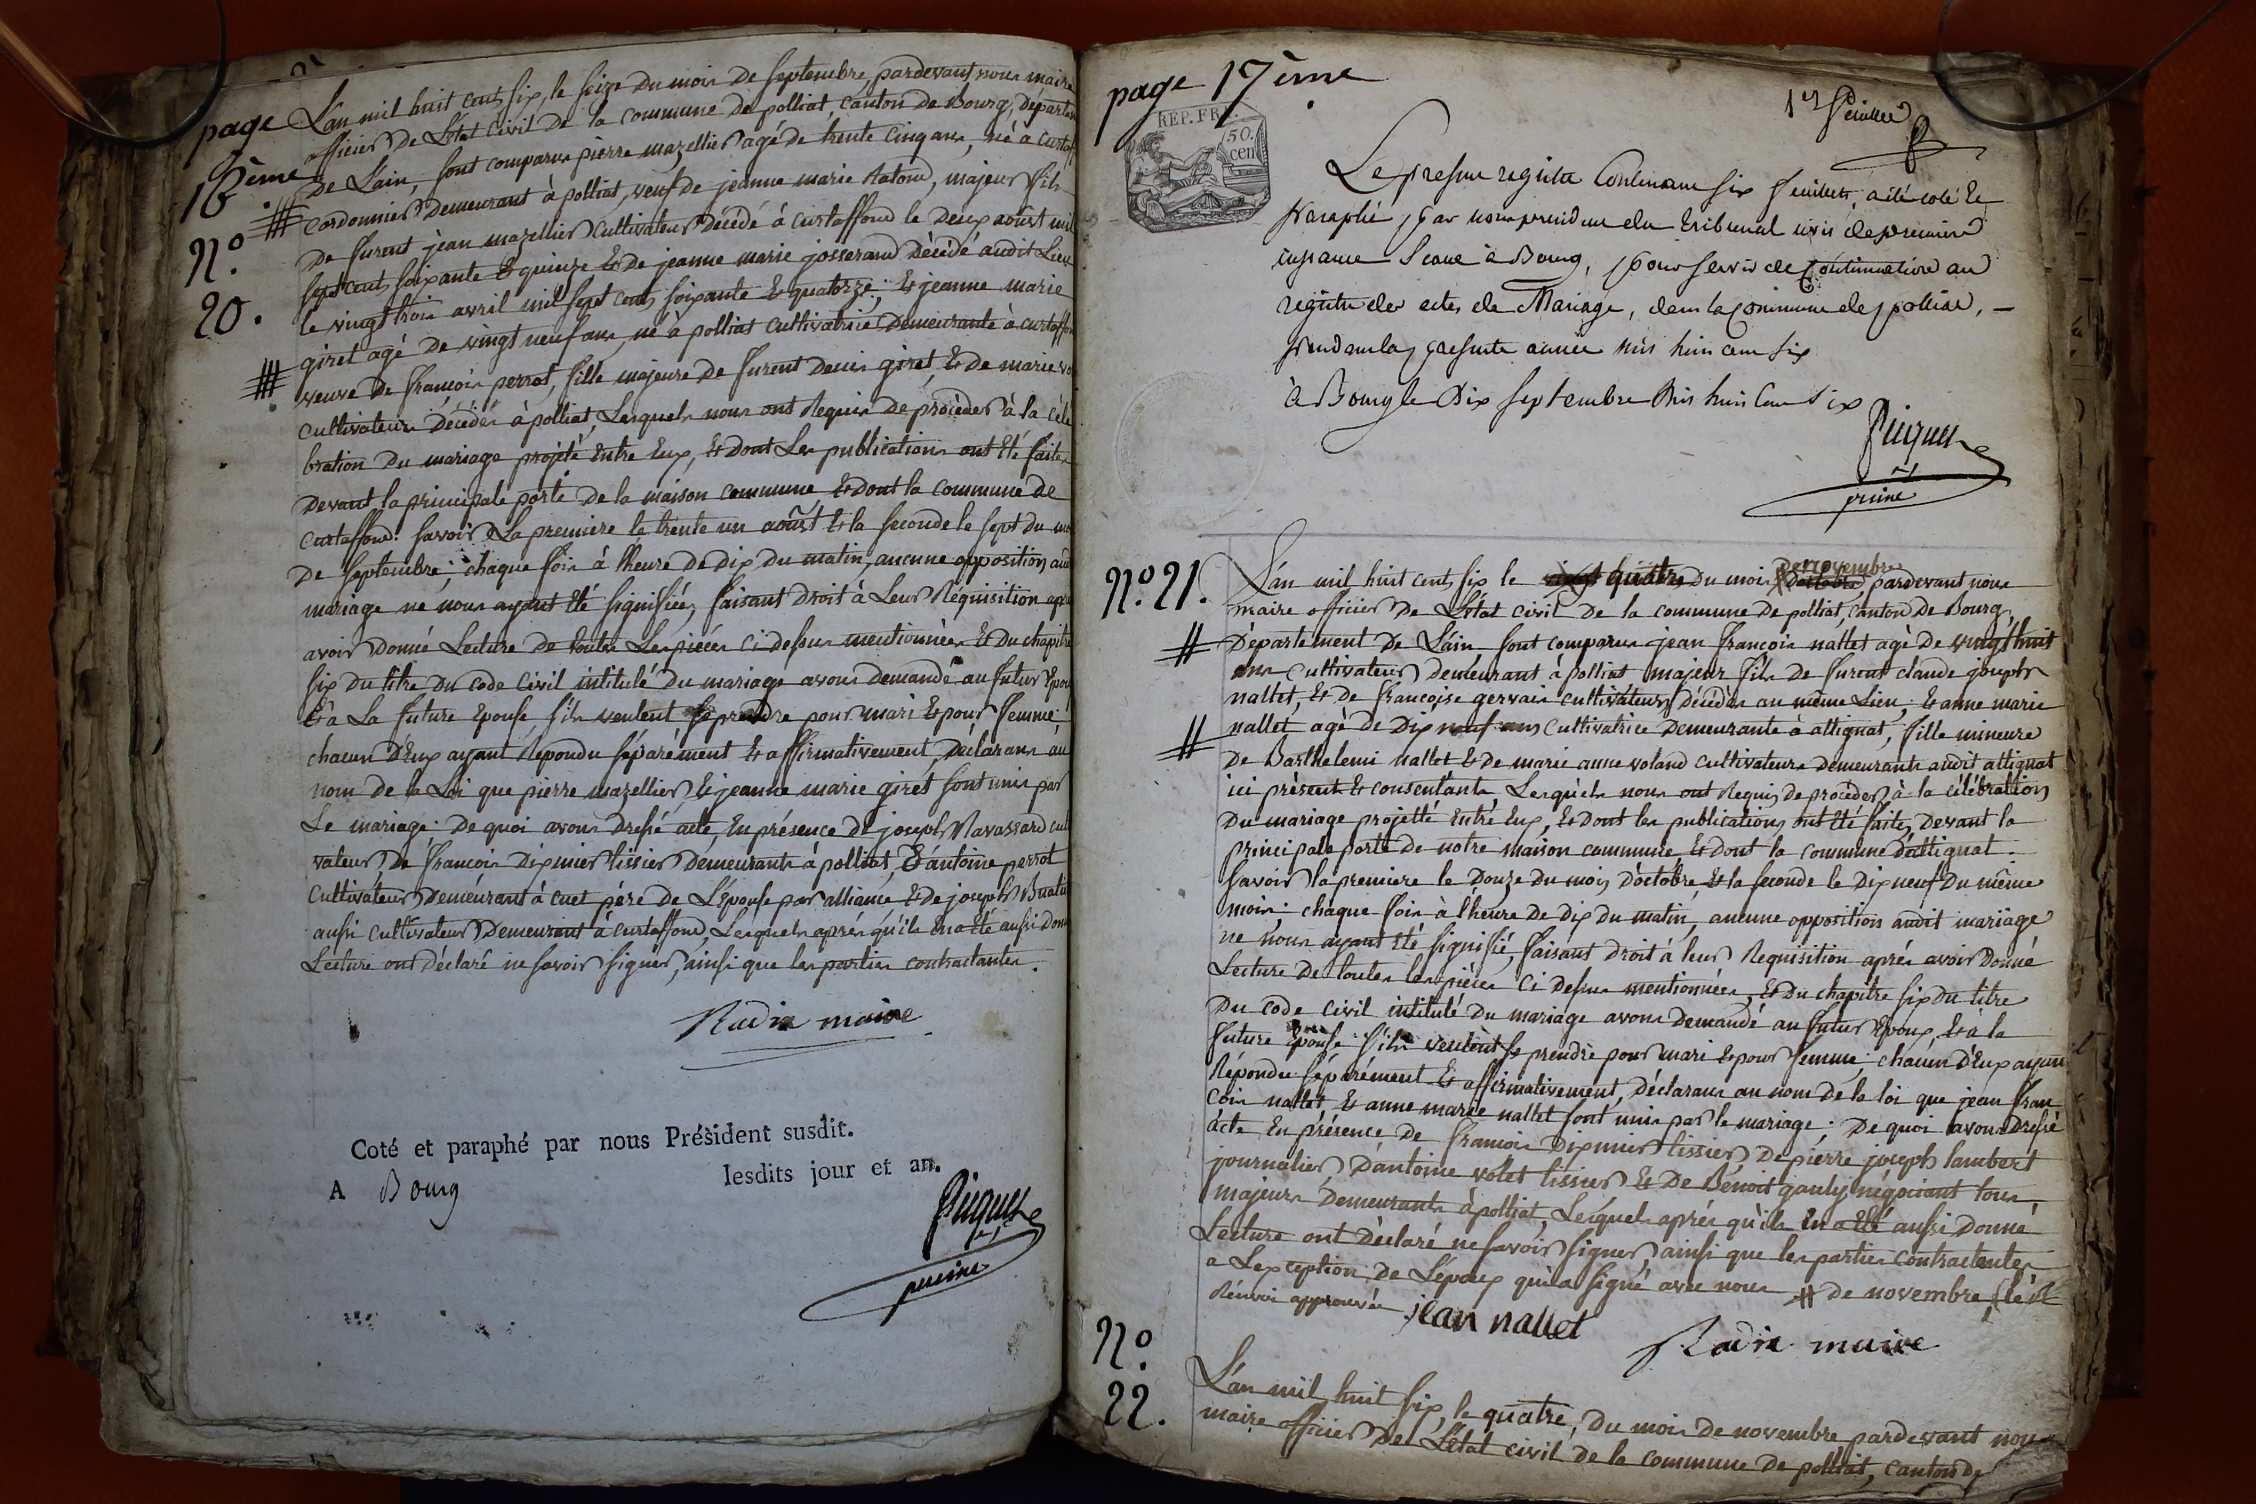 page
16ème
N°.
20.
L'an mil huit cent six, le seize du mois de septembre, pardevant nous maire
officier de L'état civil de la commune de polliat canton de Bourg, départem
de L'ain, sont comparus pierre mazellier agé de trente cinq ans, né à curtaf
cordonnier demeurant à polliat, veuf de jeanne marie, majeur fils
de furent jean mazellier cultivateur décédé à curtaffond le deux août mil
sept cent soixante & quinze & de jeanne marie josserand décédé audit Lieu
le vingt trois avril mil sept cent soixante & quatorze; & jeanne marie
giret agé de vingt neuf ans, né à polliat cultivatrice demeurante à curtaffon
veuve de françois perrot, fille majeure de furent denis giret, & de marie vo
cultivateurs décédés à polliat, Lesquels nous ont Requis de procèder à la célé
bration du mariage projeté Entre Eux, & dont Les publications ont Eté faites
devant la principale porte de la maison commune, & dont la commune de
Curtaffond: savoir La premiere le trente un août & la seconde le sept du mo
de septembre; chaque fois à l'heure de dix du matin, aucune opposition aud
mariage ne nous ayant Eté signifiée, faisant droit à Leur Réquisition aprés
avoir donné Lecture de toutes Les pièces ci dessus mentionnées & du chapitre
six du titre du code civil intitulé du mariage avons demandé au futur Epou
& à La future Epouse s'ils veulent se prendre pour mari & pour femme
chacun d'Eux ayant Répondu séparément & affirmativement, déclarons au
nom de la Loi que pierre mazellier, & jeanne marie giret sont unis par
Le mariage: de quoi avons dressé acte, En présence de joseph Navassard cul
vateur, de françois dixmier tissier demeurants à polliat, & d'antoine perrot
cultivateur demeurant à cuet pére de L'épouse par alliance & de joseph Buati
aussi cultivateur demeurant à curtaffond, Lesquels aprés qu'ils En a Eté aussi donn
Lecture ont déclaré ne savoir signer, ainsi que les parties contractantes.
Radix maire
Coté et paraphé par nous Président susdit.
A Bourg lesdits jour et an.
Picquet
page 17ème
REP. FRA.
50.
cen
1er feuillet
Le present registre Contenant six feuillets, a été coté et
paraphé, par nous president du tribunal civil de premiere
instance seant à Bourg, pour servir de Continuation au
registre des actes de Mariage, dans la Commune de polliat, —
pendant la presente année mil huit cent six
à Bourg le dix septembre mil huit cent six
Picquet
N°. 21.
L'an mil huit cent six le vingt quatre du mois d'octobre de novembre, pardevant nous
maire officier de L'état civil de la commune de polliat, canton de Bourg,
département de L'ain, sont comparus jean françois nallet agé de vingt huit
ans cultivateur demeurant à polliat majeur fils de furent claude joseph
nallet, & de françoise gervais cultivateurs décédés au même Lieu, & anne marie
nallet agé de dix neuf ans cultivatrice demeurante à attignat, fille mineure
de Barthelemi nallet & de marie anne voland cultivateurs demeurants audit attignat
ici présents & consentants, Lesquels nous ont Requis de procèder à la célébration
du mariage projetté Entre Eux, & dont les publications ont Eté faites, devant la
principale porte de notre maison commune, & dont la commune d'attignat.
Savoir la premiere le douze du mois d'octobre, & la seconde le dix neuf du même
mois: chaque fois à l'heure de dix du matin, aucune opposition audit mariage
ne nous ayant Eté signifié, faisant droit à leur Requisition aprés avoir donné
Lecture de toutes les pièces ci dessus mentionnées, & du chapitre six du titre
du code civil intitulé du mariage avons demandé au futur Epoux, & à la
future Epouse s'ils veulent se prendre pour mari & pour femme; chacun d'Eux ayant
Répondu séparément & affirmativement, déclarons au nom de la loi que jean fran
cois nallet & anne marie nallet sont unis par le mariage; De quoi avons dressé
acte En présence de francois Dixmier tissier, de pierre joseph lambert
journalier, d'antoine volet tissier & de Bénoit gauly négociant tous
majeurs demeurants à polliat, Lesquels aprés qu'ils En a Eté aussi donné
Lecture ont déclaré ne savoir signer, ainsi que les parties contractantes
a L'exception de L'époux qui a signé avec nous # de novembre
Rénvoi approuvés jean nallet
Radix maire
N°.
22.
L'an mil huit six, le quatre, du mois de novembre pardevant nous
maire officier de L'état civil de la commune de polliat, canton de